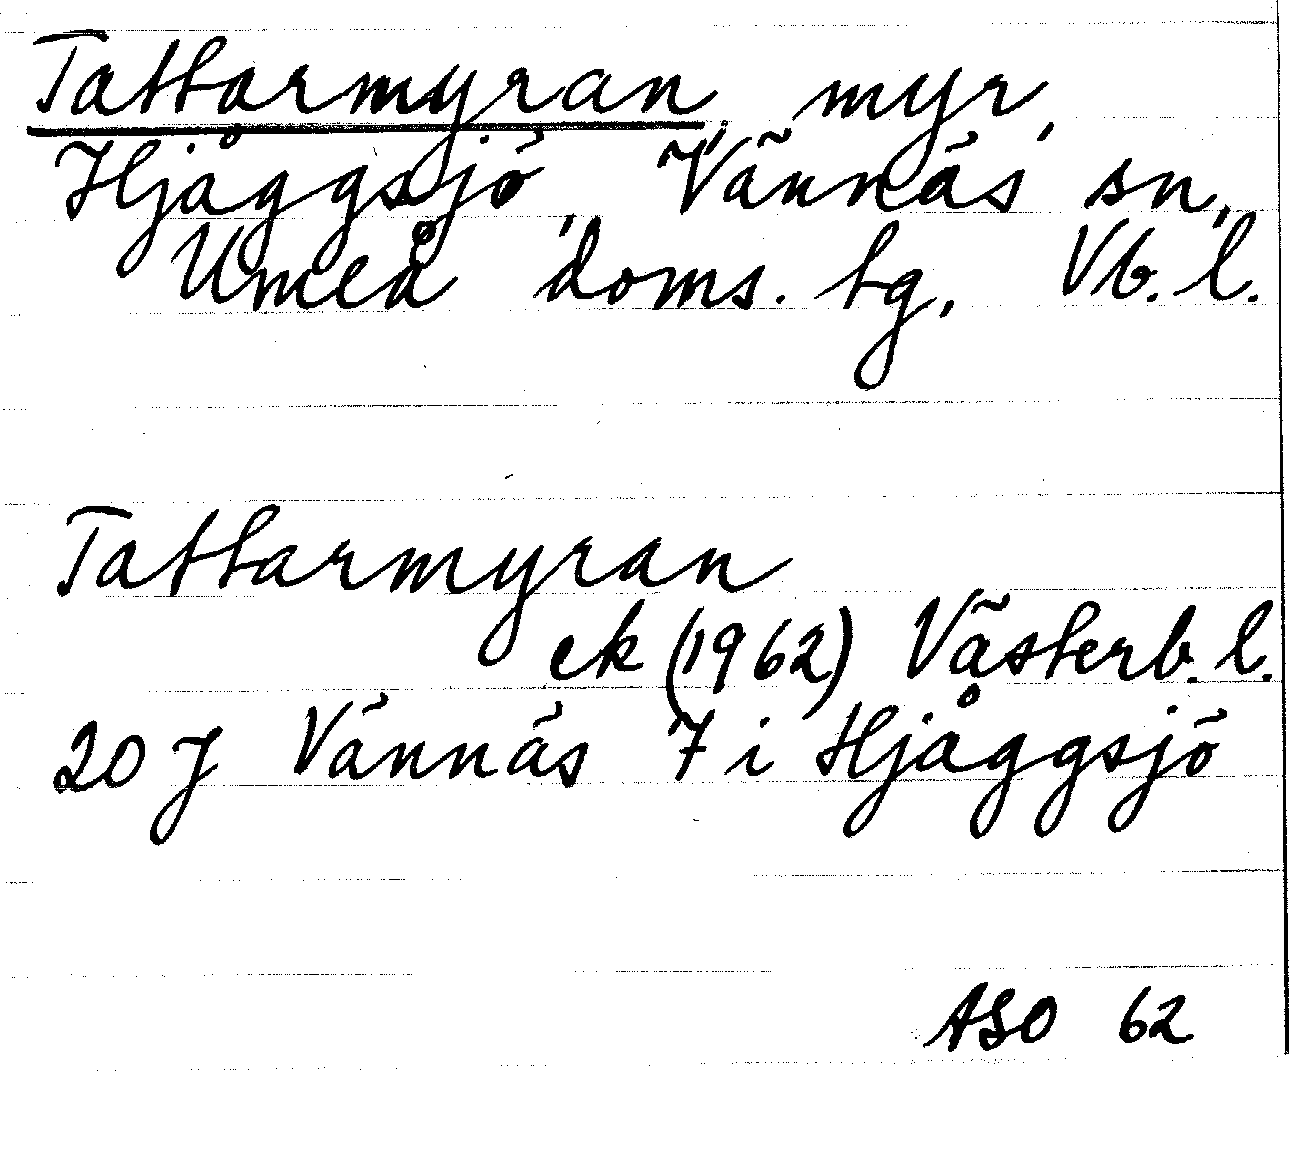 Tattarmyran, myr,
Hjåggsjö, Vännäs sn,
Umeå doms. tg, Vb. l.
Tattarmyran
ek (1962) Västerb. l.
20 J Vännäs 7 i Hjåggsjö
ASO 62